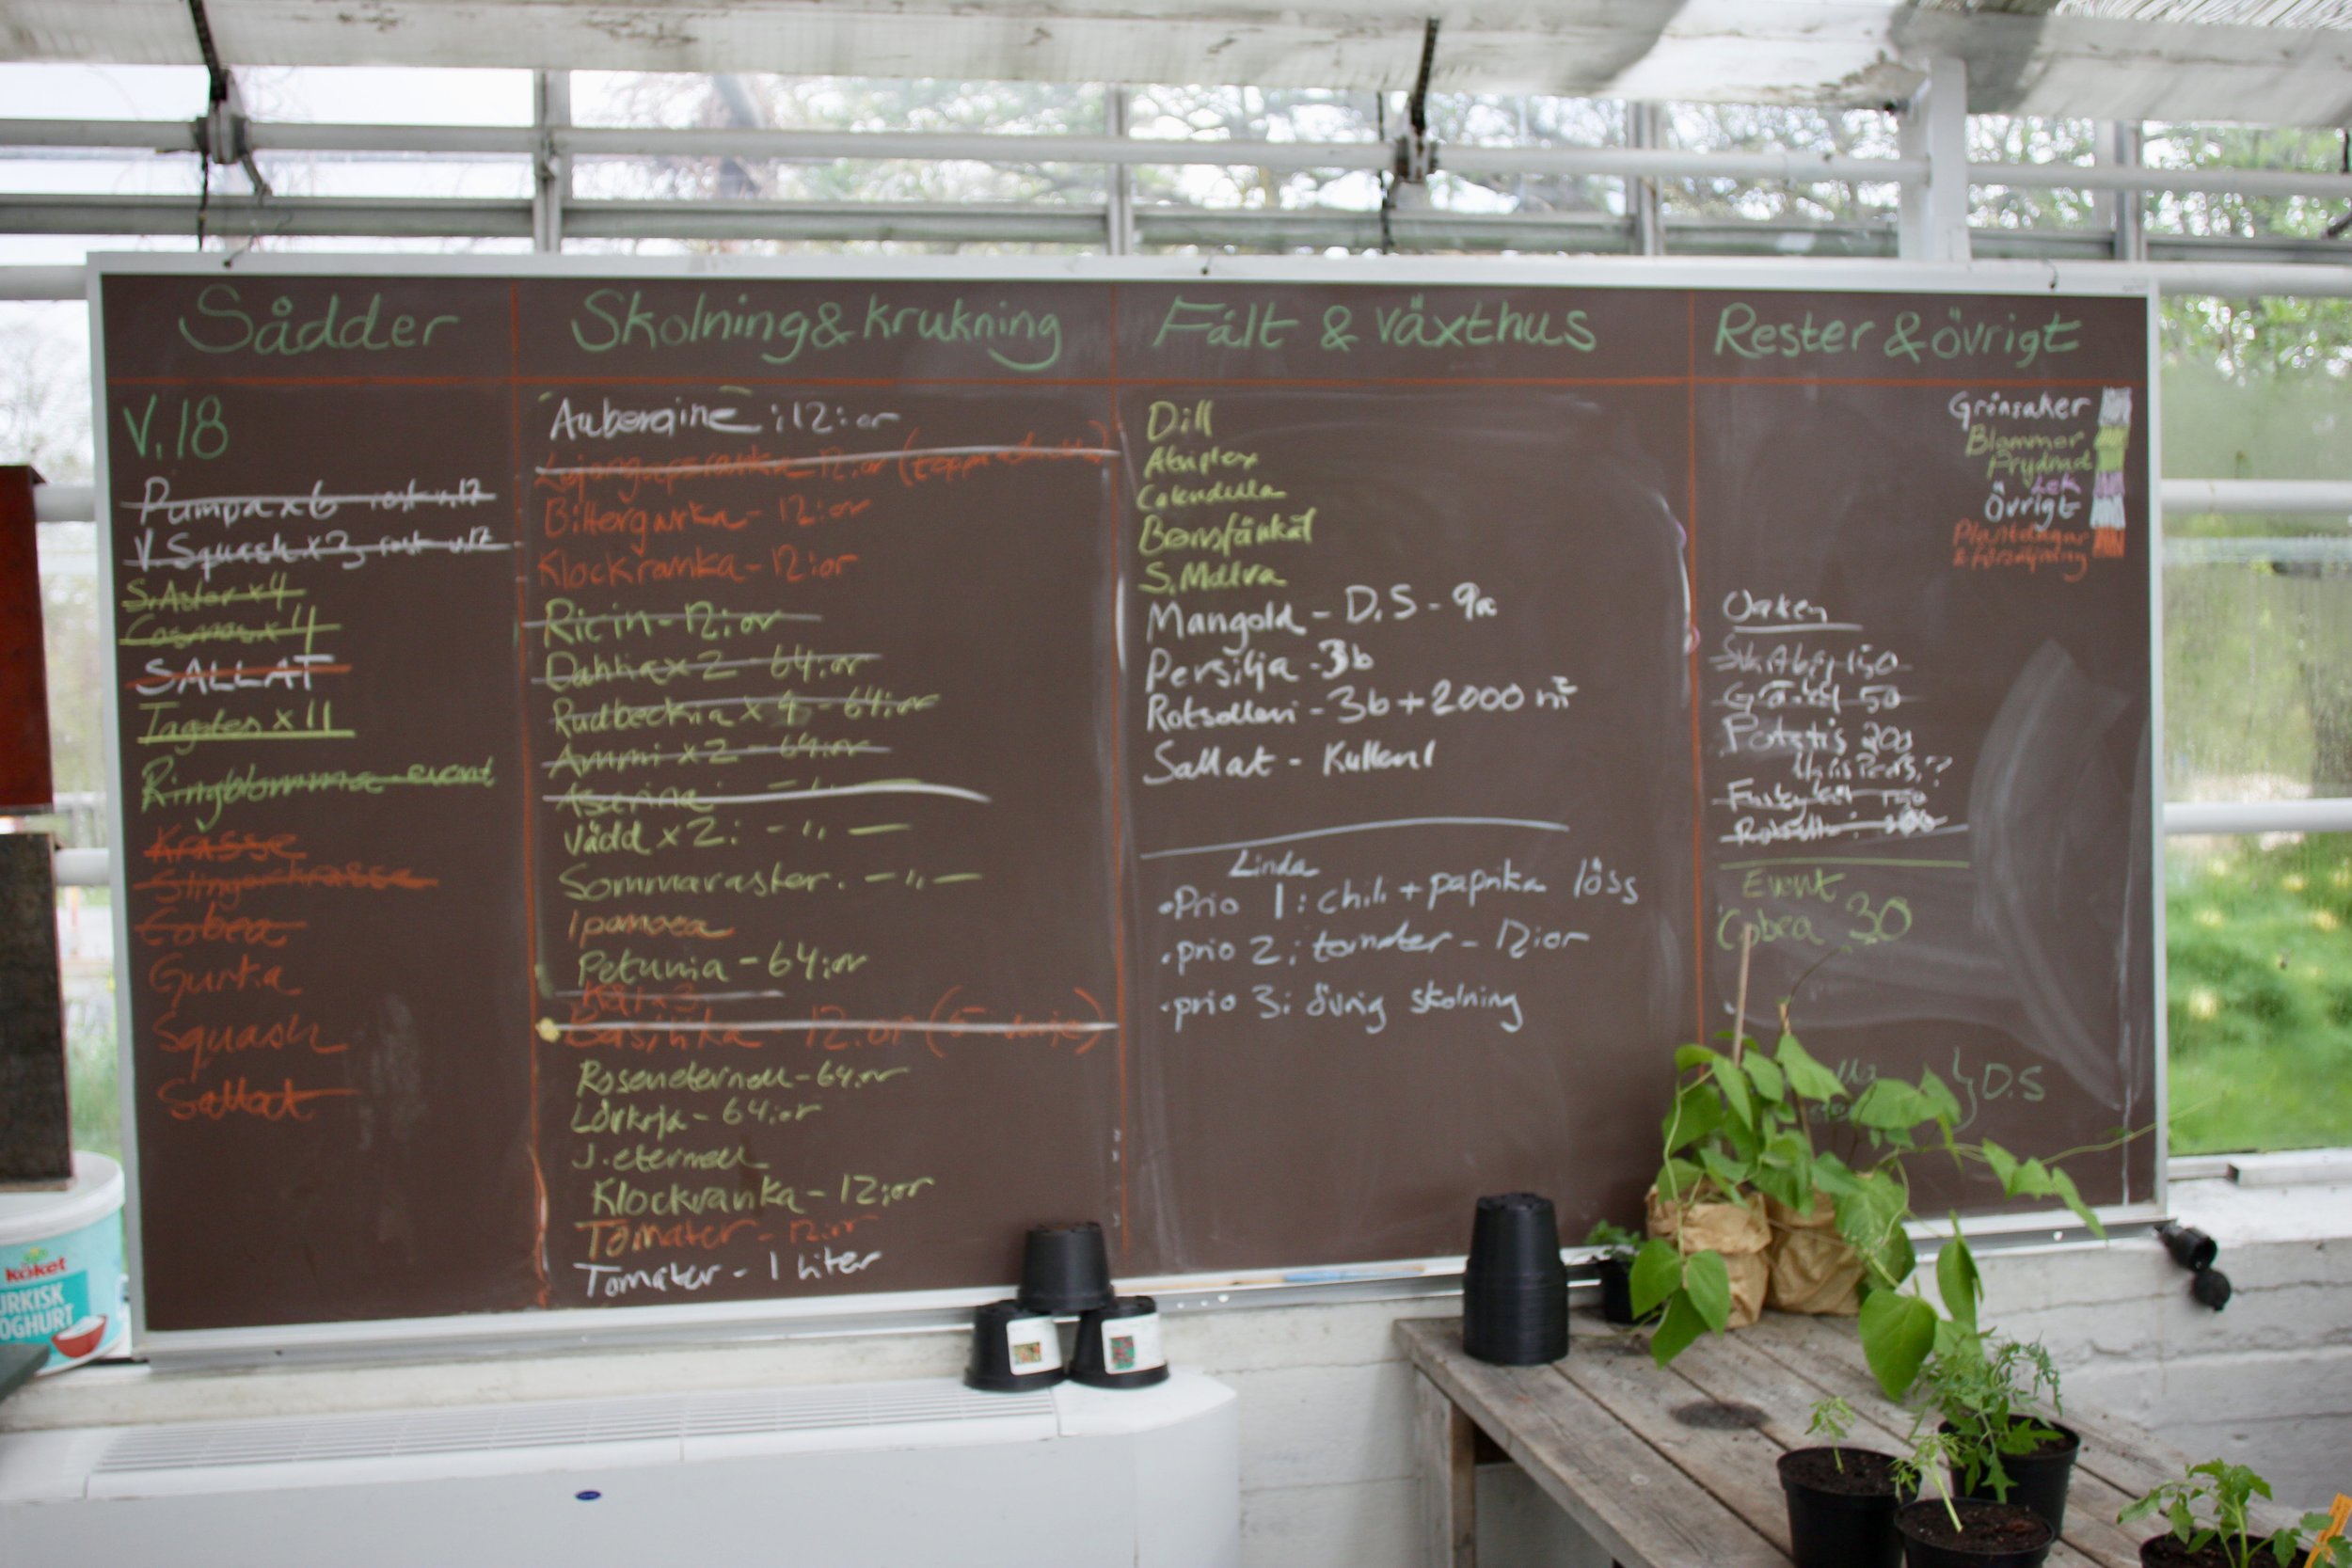 Sådder
V.18
Pumpa x 6 rest v.12
V. Squash x 3 rest v.12
S. Aster x 4
Cosmos x 4
SALLAT
Tagetes x 11
Ringblomma event
Krasse
Slingerkrasse
Cobea
Gurka
Squash
Sallat
Skolning & krukning
Aubergine : 12:or
12:or
Bittergurka - 12:or
Klockranka - 12:or
Ricin - 12:or
Dahlia x 2 - 64:or
Rudbeckia x 4 - 64:or
Ammi x 2 - 64:or
Asarina - " -
Vädd x 2: - " -
Sommaraster. - " -
Ipomoea
Petunia - 64:or
Kål x 3
Basilika - 12:or
Roseneternell - 64:or
64:or
J. eternell
Klockranka - 12:or
Tomater - 12:or
Tomater - 1 liter
Fält & växthus
Dill
Atriplex
Calendula
Bronsfänkål
S. Malva
Mangold - D.S - 9a
Persilja - 3b
Rotselleri - 3b + 2000 m²
Sallat - Kullen1
Linda
• Prio 1: chili + paprika löss
• prio 2: tomater - 12:or
• prio 3: övrig skolning
Rester & övrigt
Grönsaker
Blommor
Prydnad
Lek
Övrigt
Plantdagar
& försäljning
50
Potatis 200
Event
Cobea 30
D.S
köket
TURKISK
YOGHURT